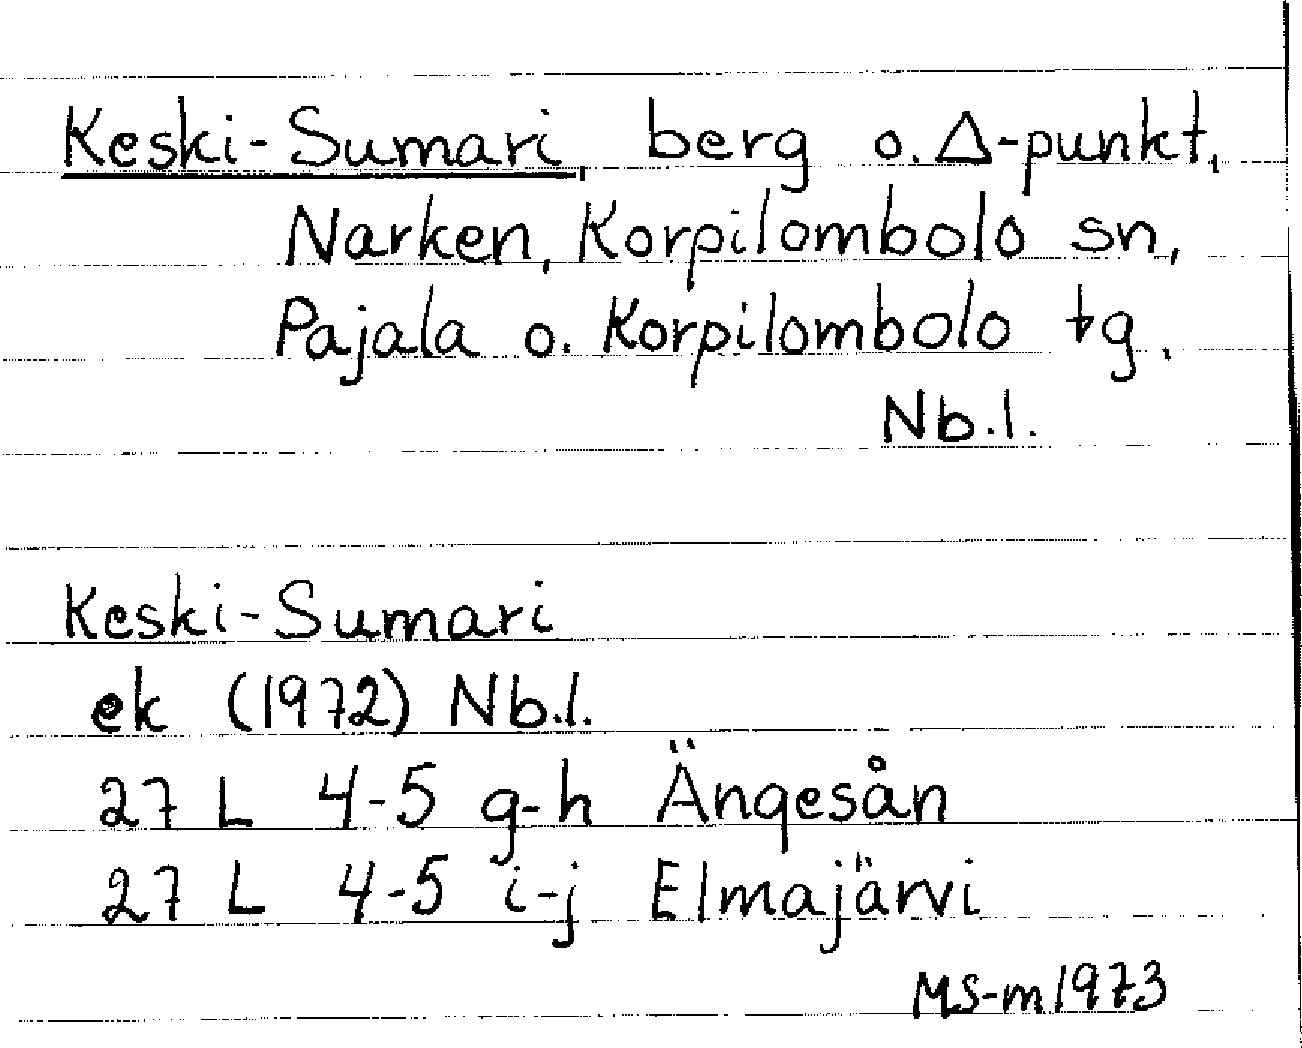 Keski-Sumari, berg o. Δ-punkt,
Narken, Korpilombolo sn,
Pajala o. Korpilombolo tg.
Nb.l.
Keski-Sumari
ek (1972) Nb.l.
27 L 4-5 g-h Ängesån
27 L 4-5 i-j Elmajärvi
MS-m 1973